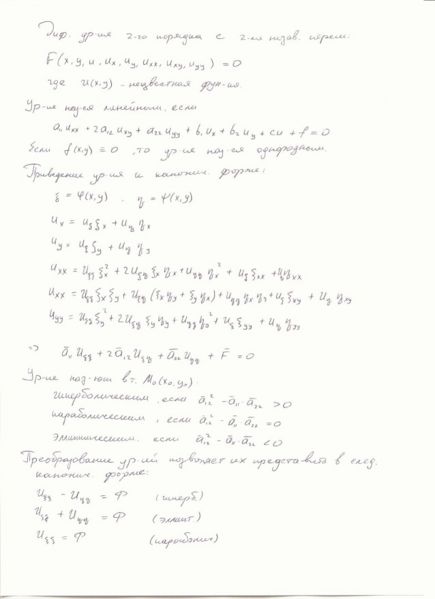 Диф. ур-ия 2-го порядка с 2-мя незав. перем.
F(x, y, u, uₓ, u_y, uₓₓ, uₓy, u_yy) = 0
где u(x,y) - неизвестная фун-ия.
Ур-ие наз-ся линейным, если
a₁₁uₓₓ + 2a₁₂uₓy + a₂₂u_yy + b₁uₓ + b₂u_y + cu + f = 0
Если f(x,y) ≡ 0, то ур-ие наз-ся однородным.
Приведение ур-ия к канонич. форме:
ξ = φ(x,y), η = ψ(x,y)
uₓ = u_ξ ξₓ + u_η ηₓ
u_y = u_ξ ξ_y + u_η η_y
uₓₓ = u_ξξ ξₓ² + 2u_ξη ξₓ ηₓ + u_ηη ηₓ² + u_ξ ξₓₓ + u_η ηₓₓ
uₓₓ = u_ξξ ξₓ ξ_y + u_ξη (ξₓ η_y + ξ_y ηₓ) + u_ηη ηₓ η_y + u_ξ ξₓy + u_η ηₓy
u_yy = u_ξξ ξ_y² + 2u_ξη ξ_y η_y + u_ηη η_y² + u_ξ ξ_yy + u_η η_yy
=> ā₁₁ u_ξξ + 2ā₁₂ u_ξη + ā₂₂ u_ηη + F̄ = 0
Ур-ие в т. M₀(x₀, y₀)
гиперболическим, если ā₁₂² - ā₁₁·ā₂₂ > 0
параболическим, если ā₁₂² - ā₁₁ ā₂₂ = 0
эллиптическим, если ā₁₂² - ā₁₁·ā₂₂ < 0
Преобразование ур-ий позволяет их представить в след.
канонич. форме:
u_ξξ - u_ηη = Φ (гиперб)
u_ξξ + u_ηη = Φ (эллипт)
u_ξξ = Φ